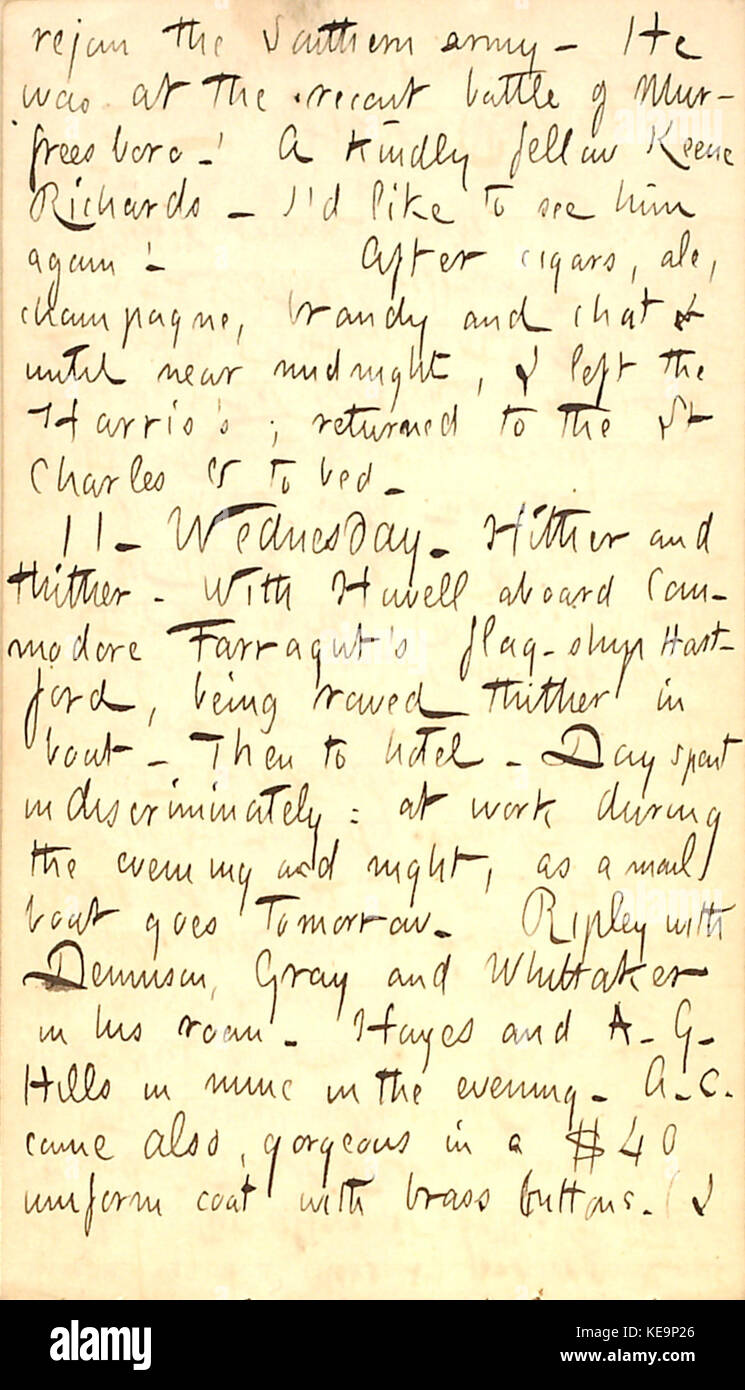 rejoin the Southern army - He
was at the recent battle of Mur-
freesboro -! A kindly fellow Keene
Richards - I'd like to see him
again! - After cigars, ale,
champagne, brandy and chat &
until near midnight, I left the
Harris's; returned to the St
Charles & to bed -
11 - Wednesday - Hither and
thither - With Howell aboard Com-
modore Farragut's flag-ship Hart-
ford, being rowed thither in
boat - Then to hotel - Day spent
indiscriminately: at work during
the evening and night, as a mail
boat goes tomorrow - Ripley with
Dennison, Gray and Whittaker
in his room - Hayes and A. G.
Hills in mine in the evening - A. C.
came also, gorgeous in a $40
uniform coat with brass buttons. (I
alamy
Image ID: KE9P26
www.alamy.com